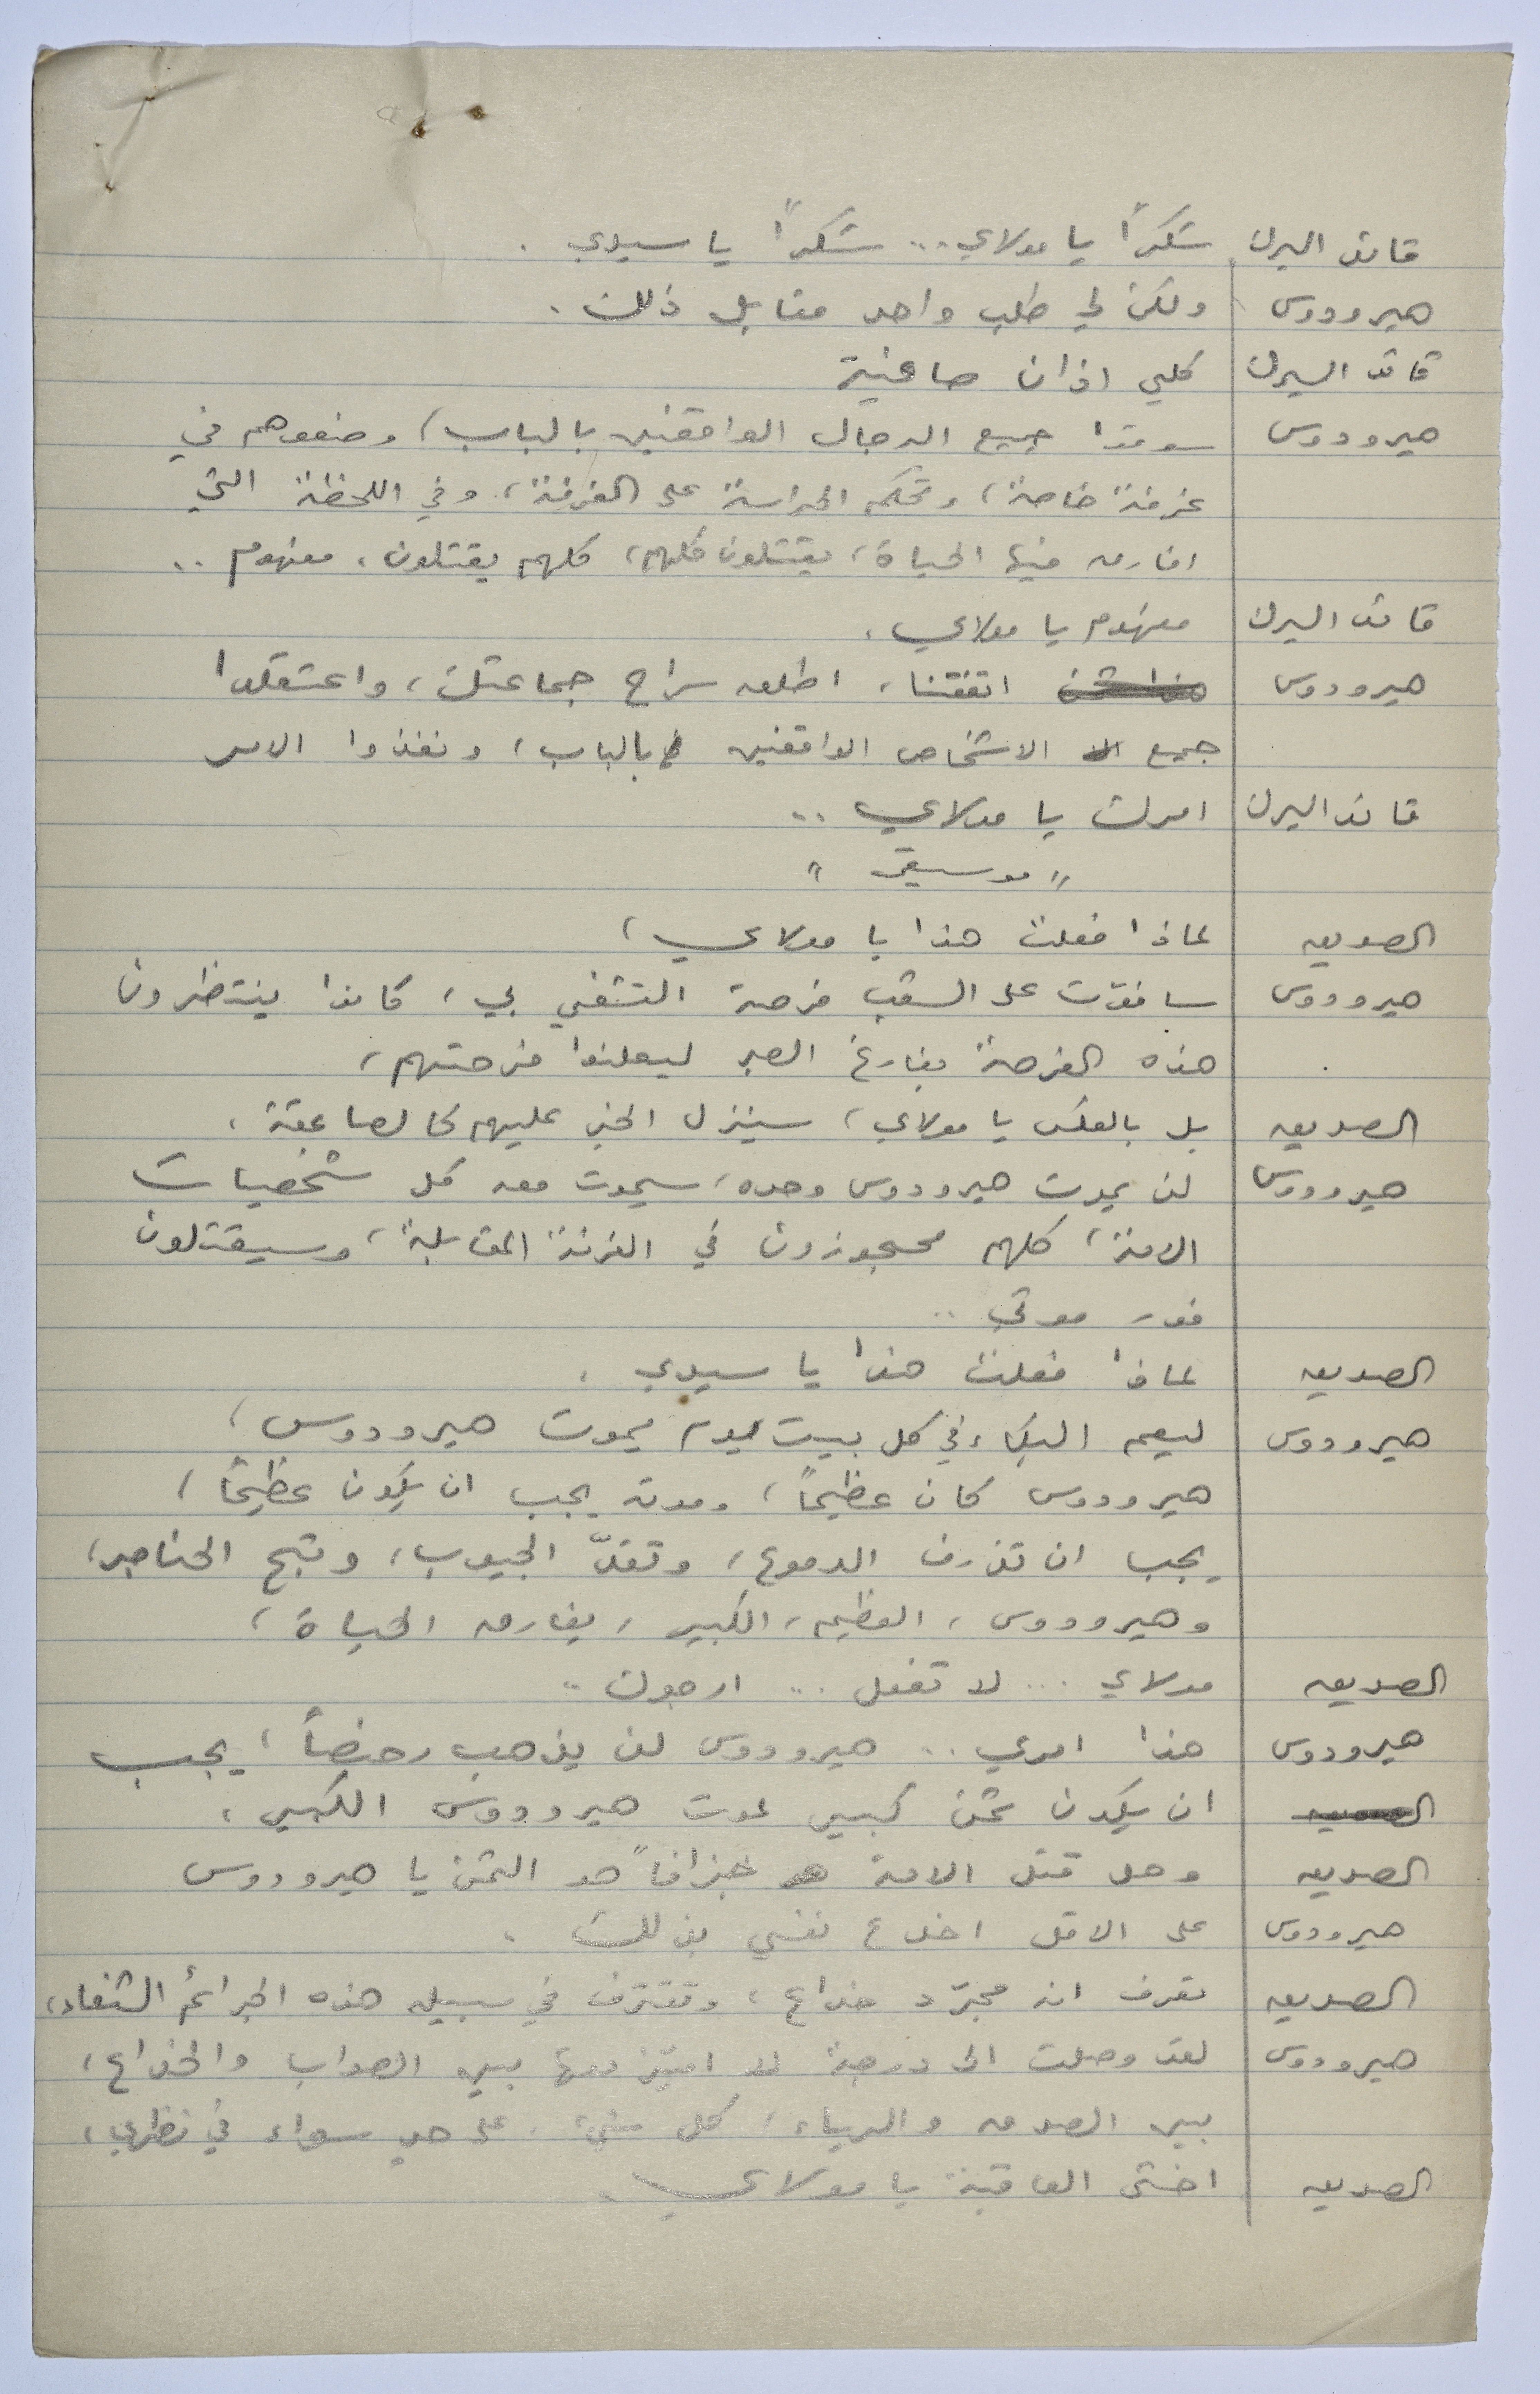 قائد السرك شكراً يا مولاي... شكراً يا سيدي.
هيرودوس ولكن لي طلب واحد مقابل ذلك.
قائد السرك كلي اذان صاغية
هيرودوس سوقوا جميع الرجال الواقفين بالباب، وضعوهم في
غرفة خاصة، وتحكم الحراسة على الغرفة، وفي اللحظة التي
افارق فيها الحياة، يقتلون كلهم، كلهم يقتلون، مفهوم..
قائد السرك مفهوم يا مولاي.
هيرودوس اتفقنا، اطلق سراح جماعتك، واعتقلوا
جميع الاشخاص الواقفين بالباب، ونفذوا الامر
قائد السرك امرك يا مولاي..
"موسيقى"
الصديق لماذا فعلت هذا يا مولاي،
هيرودوس سافوّت على الشعب فرصة التشفي بي، كانوا ينتظرون
هذه الفرصة بفارغ الصبر ليعلنوا فرحتهم،
الصديق بل بالعكس يا مولاي، سينزل الخبر عليهم كالصاعقة.
هيرودوس لن يموت هيرودوس وحده، سيموت معه كل شخصيات
الامة، كلهم محجوزون في الغرفة المقابلة، وسيقتلون
فور موتي..
الصديق لماذا فعلت هذا يا سيدي.
هيرودوس ليعم البكاء في كل بيت يوم يموت هيرودوس،
هيرودوس كان عظيماً، وموته يجب ان يكون عظيماً،
يجب ان تذرف الدموع، وتقدّ الجيوب، وتبح الحناجر،
وهيرودوس، العظيم، الكبير، يفارق الحياة،
الصديق مولاي... لا تفعل... ارجوك..
هيرودوس هذا امري.. هيرودوس لن يذهب رخيصاً، يجب
ان يكون ثمن كبير لموت هيرودوس الكبير،
الصديق وهل قتل الامة جزافاً هو الثمن يا هيرودوس
هيرودوس على الاقل اخدع نفسي بذلك.
الصديق تعرف انه مجرّد خداع، وتقترف في سبيله هذه الجرائم الشنعاء،
هيرودوس لقد وصلت الى درجة لا اميز فيها بين الصواب والخداع،
بين الصدق والرياء، كل شيء على حد سواء في نظري،
الصديق اخشى العاقبة يا مولاي.